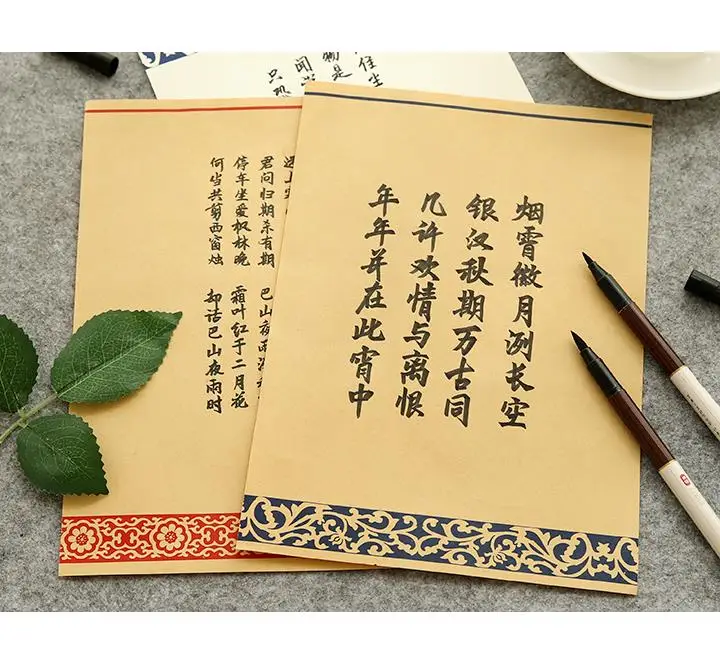 烟霄徽月洌长空
银汉秋期万古同
几许欢情与离恨
年年并在此宵中
上
君问归期杀有期 巴山夜雨
停车坐爱权林晚 霜叶红于二月花
何当共剪西窗烛 却话巴山夜雨时
是
闻
只